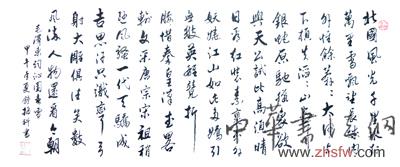 北國風光千里冰封
萬里雪飄望長城內
外惟餘莽莽大河上
下頓失滔滔山舞
銀蛇原馳蠟象欲
與天公試比高須晴
日看紅裝素裹分外
妖嬈江山如此多嬌引
無數英雄競折
腰惜秦皇漢武略
輸文采唐宗宋祖稍
遜風騷一代天驕成
吉思汗只識彎弓
射大雕俱往矣數
風流人物還看今朝
毛澤東詞沁園春雪
甲午年夏
zhsfw.com